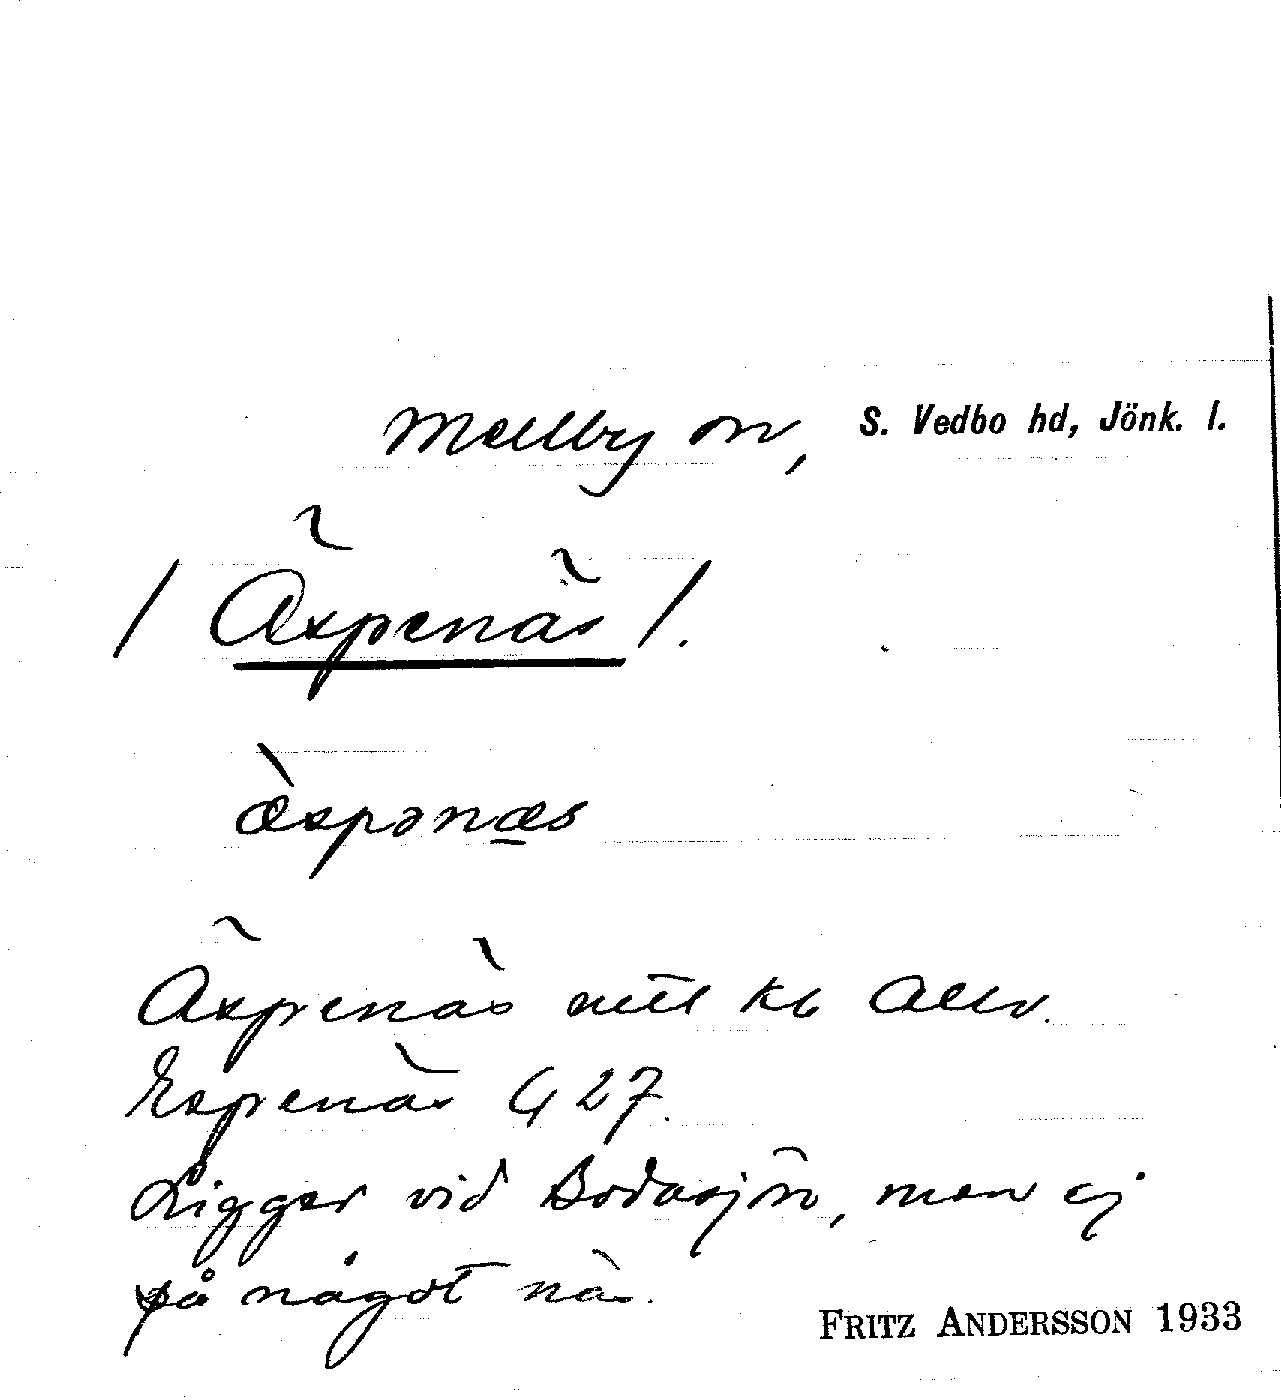 Mellby sn, S. Vedbo hd, Jönk. l.
/ Äspenäs /.
æ̀spənæs
Äspenäs mtl kb Allm.
Espenäs G 27.
Ligger vid Bodasjön, men ej
på något näs.
FRITZ ANDERSSON 1933